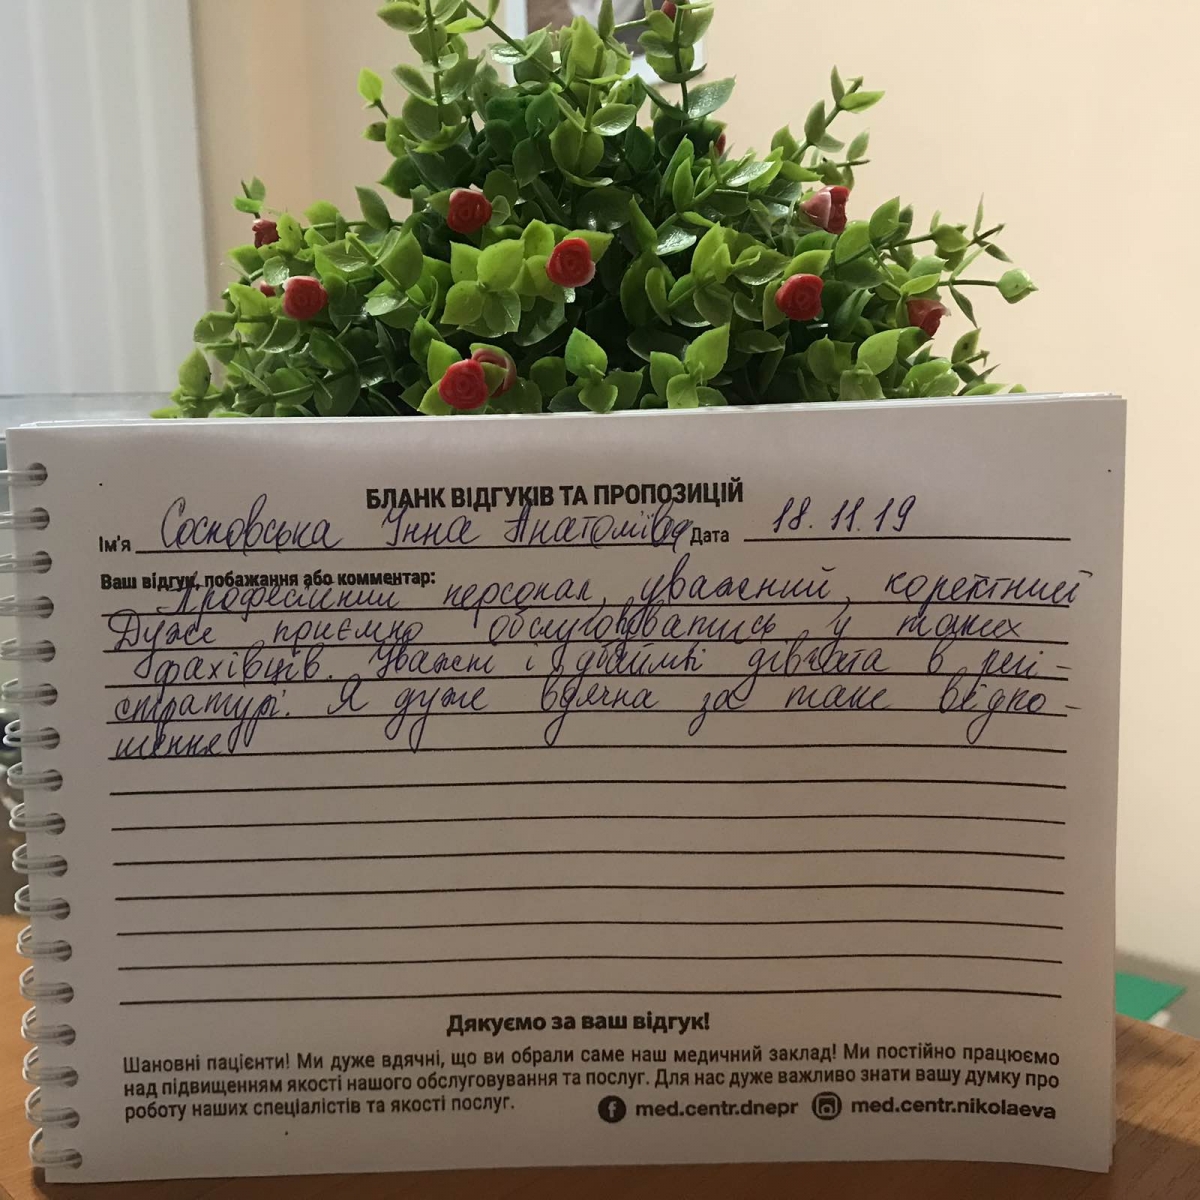 БЛАНК ВІДГУКІВ ТА ПРОПОЗИЦІЙ
Ім'я Сосновська Інна Анатоліївна Дата 18.11.19
Ваш відгук, побажання або комментар:
Професійний персонал, уважний, коректний
Дуже приємно обслуговуватись у таких
фахівців. Уважні і дбайливі дівчата в регі-
стратурі. Я дуже вдячна за таке відно-
шення
Дякуємо за ваш відгук!
Шановні пацієнти! Ми дуже вдячні, що ви обрали саме наш медичний заклад! Ми постійно працюємо
над підвищенням якості нашого обслуговування та послуг. Для нас дуже важливо знати вашу думку про
роботу наших спеціалістів та якості послуг.
med.centr.dnepr med.centr.nikolaeva